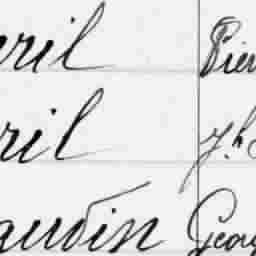 ril Pier
ril Jh
audin Geor